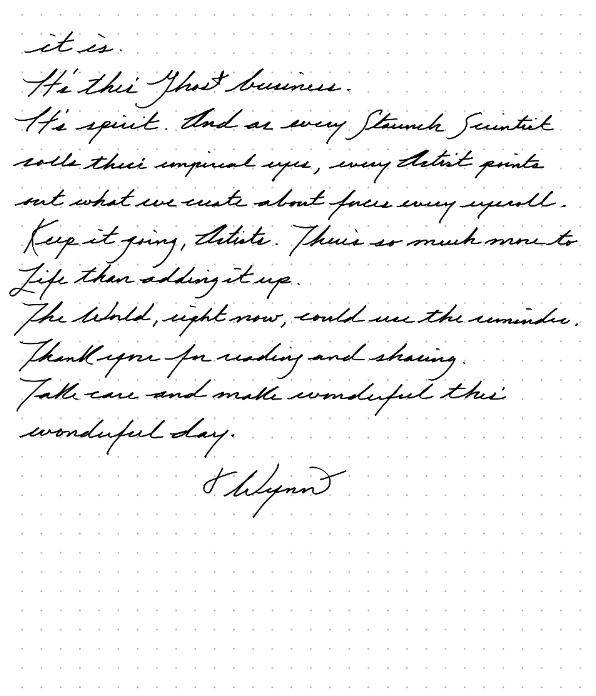 it is.
It's this Ghost business.
It's spirit. And as every Staunch Scientist
rolls their empirical eyes, every Artist points
out what we create about faces every eyeroll.
Keep it going, Artists. There's so much more to
Life than adding it up.
The World, right now, could use the reminder.
Thank you for reading and sharing.
Take care and make wonderful this
wonderful day.
Wynn